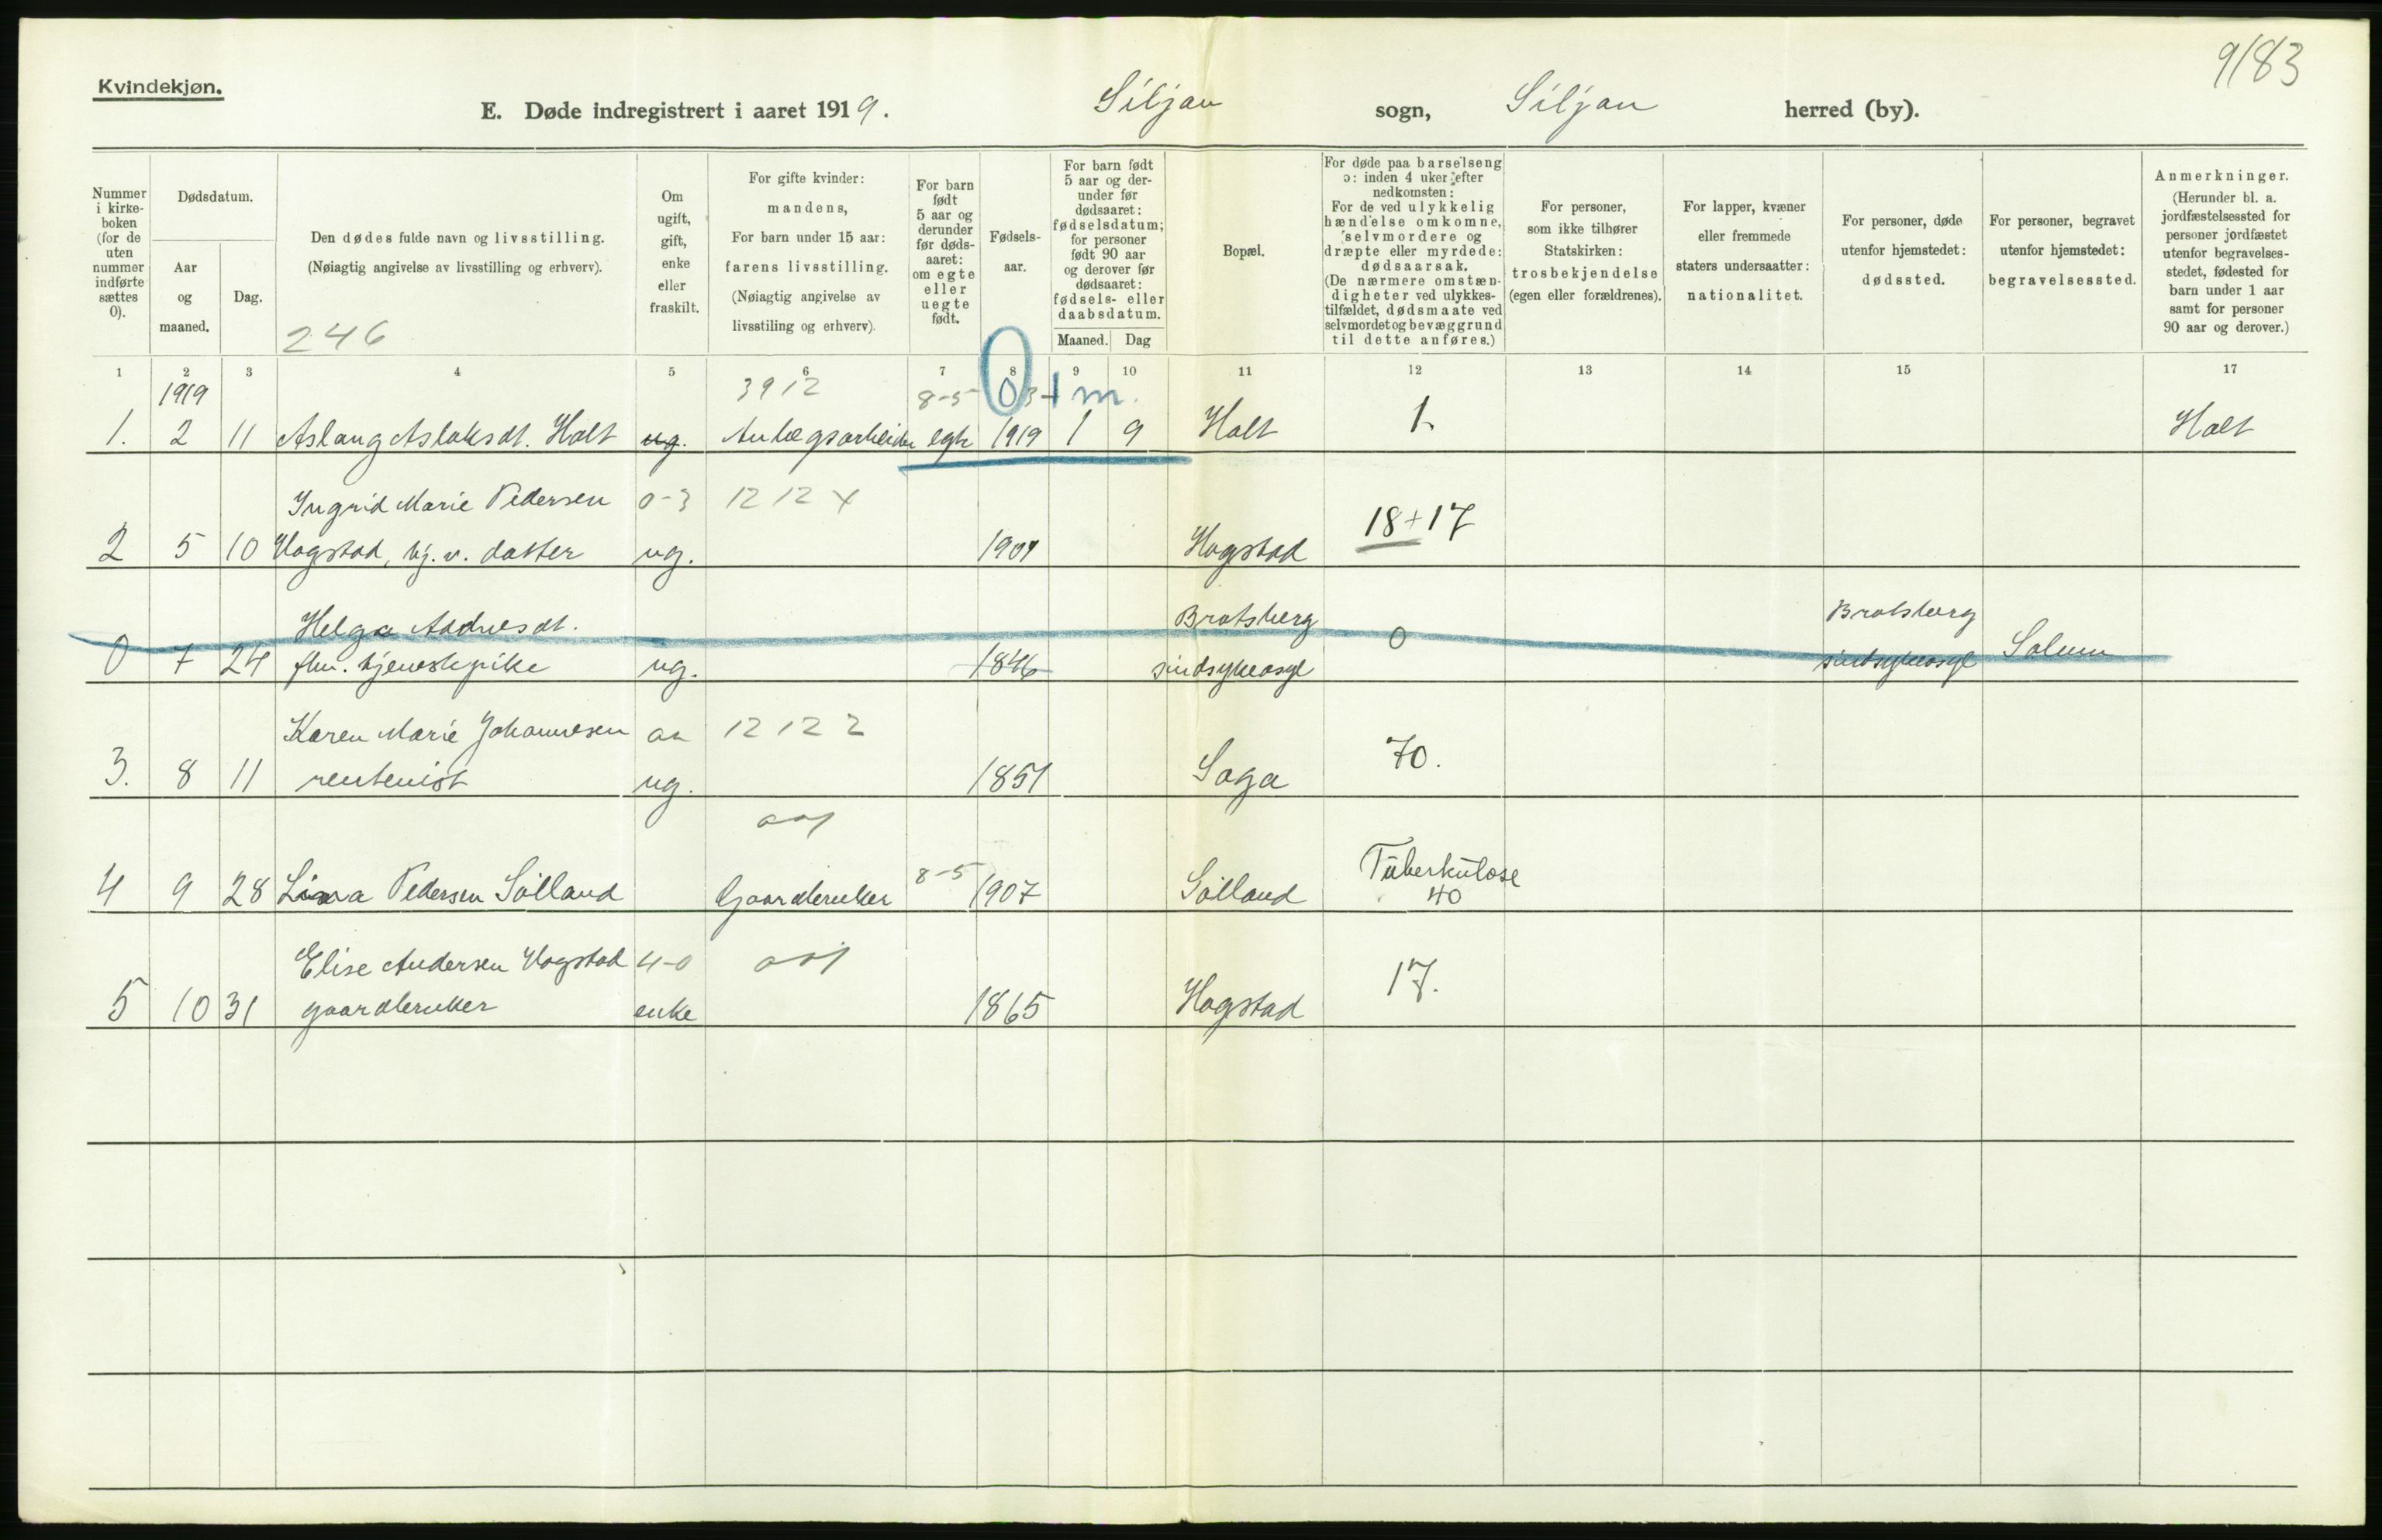 9/83
Kvindekjøn.
E. Døde indregistrert i aaret 1919. Siljan sogn, Siljan herred (by).
Nummer i kirke- boken (for de uten nummer indførte sættes 0).
Dødsdatum.
Aar og maaned.
Dag.
Den dødes fulde navn og livsstilling.
(Nøiagtig angivelse av livsstilling og erhverv).
246
Om ugift, gift, enke eller fraskilt.
For gifte kvinder: mandens,
For barn under 15 aar: farens livsstilling.
(Nøiagtig angivelse av livsstiling og erhverv).
For barn født 5 aar og derunder før døds- aaret: om egte eller uegte født.
Fødsels- aar.
For barn født 5 aar og der- under før dødsaaret: fødselsdatum; for personer født 90 aar og derover før dødsaaret: fødsels- eller daabsdatum.
Maaned. Dag
Bopæl.
For døde paa barselseng ɔ: inden 4 uker efter nedkomsten:
For de ved ulykkelig hændelse omkomne, selvmordere og dræpte eller myrdede: dødsaarsak.
(De nærmere omstæn- digheter ved ulykkes- tilfældet, dødsmaate ved selvmordet og bevæggrund til dette anføres.)
For personer, som ikke tilhører Statskirken: trosbekjendelse (egen eller forældrenes).
For lapper, kvæner eller fremmede staters undersaatter: nationalitet.
For personer, døde utenfor hjemstedet: dødssted.
For personer, begravet utenfor hjemstedet: begravelsessted.
Anmerkninger.
(Herunder bl. a. jordfæstelsessted for personer jordfæstet utenfor begravelses- stedet, fødested for barn under 1 aar samt for personer 90 aar og derover.)
1 2 3 4 5 6 7 8 9 10 11 12 13 14 15 17
1919 3912 8-5 03 1 m.
1. 2 11 Aslaug Aslaksdt. Holt ug. Anlægsarbeider egte 1919 1 9 Holt 1. Holt
Ingrid Marie Pedersen 0-3 12 12 x 18+17
2 5 10 Hogstad, hj. v. datter ug. 1901 Hogstad
Helga Andresdt. Bratsberg 0 Bratsberg
0 7 24 fhv. tjenestepike ug. 1846 sindsykeasyl sindsykeasyl Solum
Karen Marie Johannesen an 12 12 2 70.
3. 8 11 rentenist ug. 1851 Saga
001
4 9 28 Lina Pedersen Sölland Gaardbruker 8-5 1907 Sölland Tuberkulose
40
Elise Andersen Hogstad 4-0 001 17.
5 10 31 gaardbruker enke 1865 Hogstad